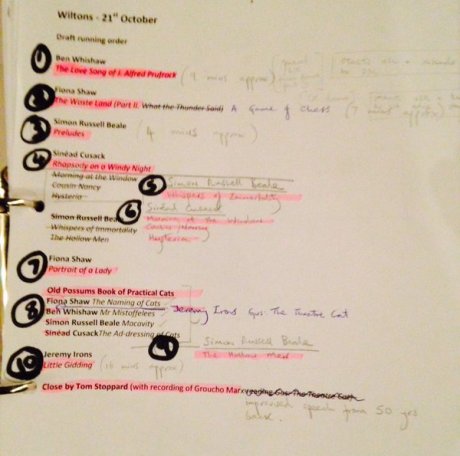 Wiltons - 21st October
Draft running order
1
Ben Whishaw
The Love Song of J. Alfred Prufrock (9 mins approx)
2
Fiona Shaw
The Waste Land (Part II. What the Thunder Said) A Game of Chess (7 mins approx)
3
Simon Russell Beale
Preludes (4 mins approx)
4
Sinéad Cusack
Rhapsody on a Windy Night
Morning at the Window
Cousin Nancy
Hysteria
5 Simon Russell Beale
Whispers of Immortality
6 Sinéad Cusack
Morning at the Window
Cousin Nancy
Hysteria
Simon Russell Beale
Whispers of Immortality
The Hollow Men
7
Fiona Shaw
Portrait of a Lady
8
Old Possums Book of Practical Cats
Fiona Shaw The Naming of Cats
Ben Whishaw Mr Mistoffelees Jeremy Irons Gus The Theatre Cat
Simon Russell Beale Macavity
Sinéad Cusack The Ad-dressing of Cats
9 Simon Russell Beale
The Hollow Men
10
Jeremy Irons
Little Gidding (16 mins approx)
Close by Tom Stoppard (with recording of Groucho Marx
improvised speech from 50 yrs
back.